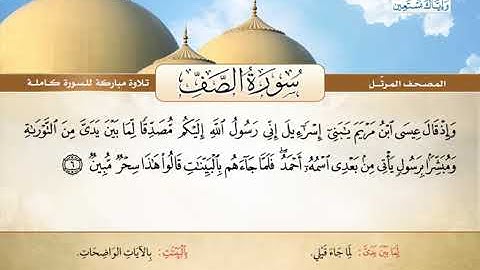 وَإِيَّاكَ نَسْتَعِينُ
المصحف المرتّل
سُورَةُ الصَّفِّ
تلاوة مباركة للسورة كاملة
وَإِذْ قَالَ عِيسَى ٱبْنُ مَرْيَمَ يَٰبَنِىٓ إِسْرَٰٓءِيلَ إِنِّى رَسُولُ ٱللَّهِ إِلَيْكُم مُّصَدِّقًا لِّمَا بَيْنَ يَدَىَّ مِنَ ٱلتَّوْرَىٰةِ
وَمُبَشِّرًۢا بِرَسُولٍ يَأْتِى مِنۢ بَعْدِى ٱسْمُهُۥٓ أَحْمَدُ ۖ فَلَمَّا جَآءَهُم بِٱلْبَيِّنَٰتِ قَالُوا۟ هَٰذَا سِحْرٌ مُّبِينٌ ٦
لِمَا بَيْنَ يَدَيَّ : لِمَا جَاءَ قَبْلِي.
بِالْبَيِّنَٰتِ : بِالآيَاتِ الوَاضِحَاتِ.